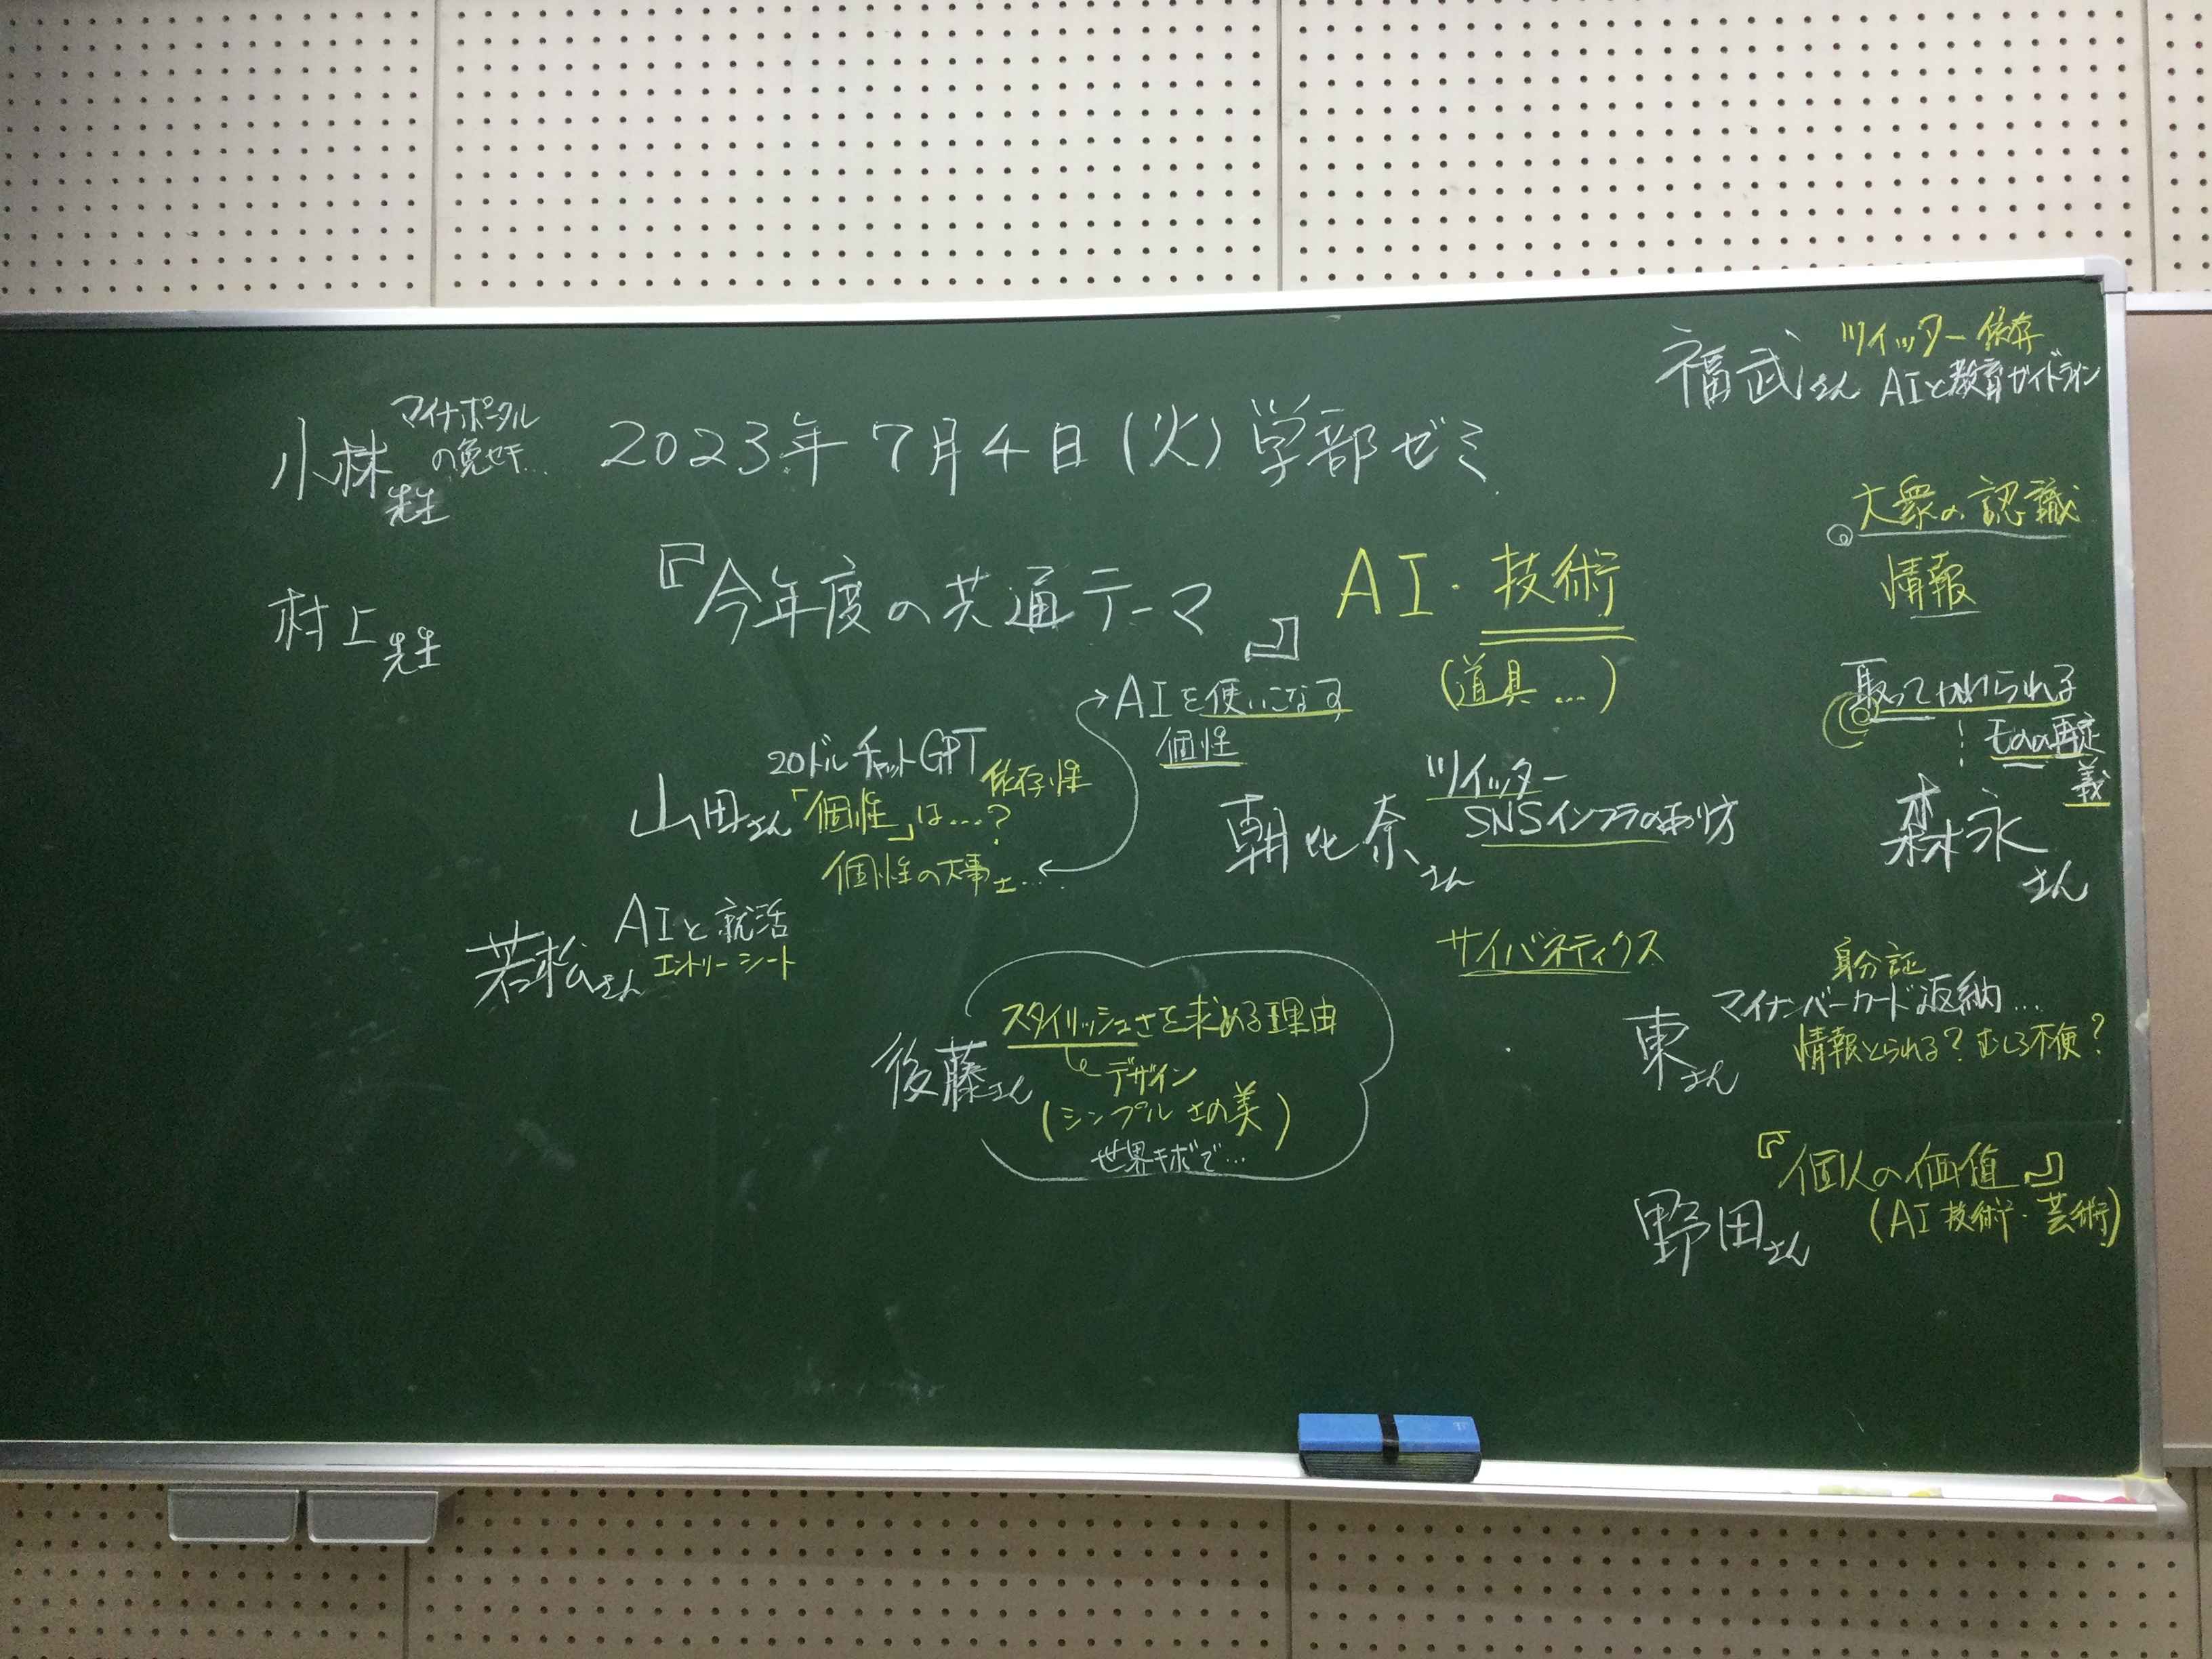 福武さん
ツイッター依存
AIと教育ガイドライン
小林先生
マイナポータル
の免
2023年7月4日(火)学部ゼミ
『今年度の共通テーマ』
AI・技術
(道具…)
大衆の認識
情報
村上先生
取ってかわられる
ものの再定
義
森永さん
AIを使いこなす
個性
山田さん
20ドルチャットGPT
依存性
「個性」は…?
個性の大事さ…
朝比奈さん
ツイッター
SNSインフラのあり方
若松さん
AIと就活
エントリーシート
サイバネティクス
後藤さん
スタイリッシュさを求める理由
デザイン
(シンプルさの美)
世界キボで…
東さん
身分証
マイナンバーカード返納…
情報とられる?むしろ不便?
野田さん
『個人の価値』
(AI技術・芸術)